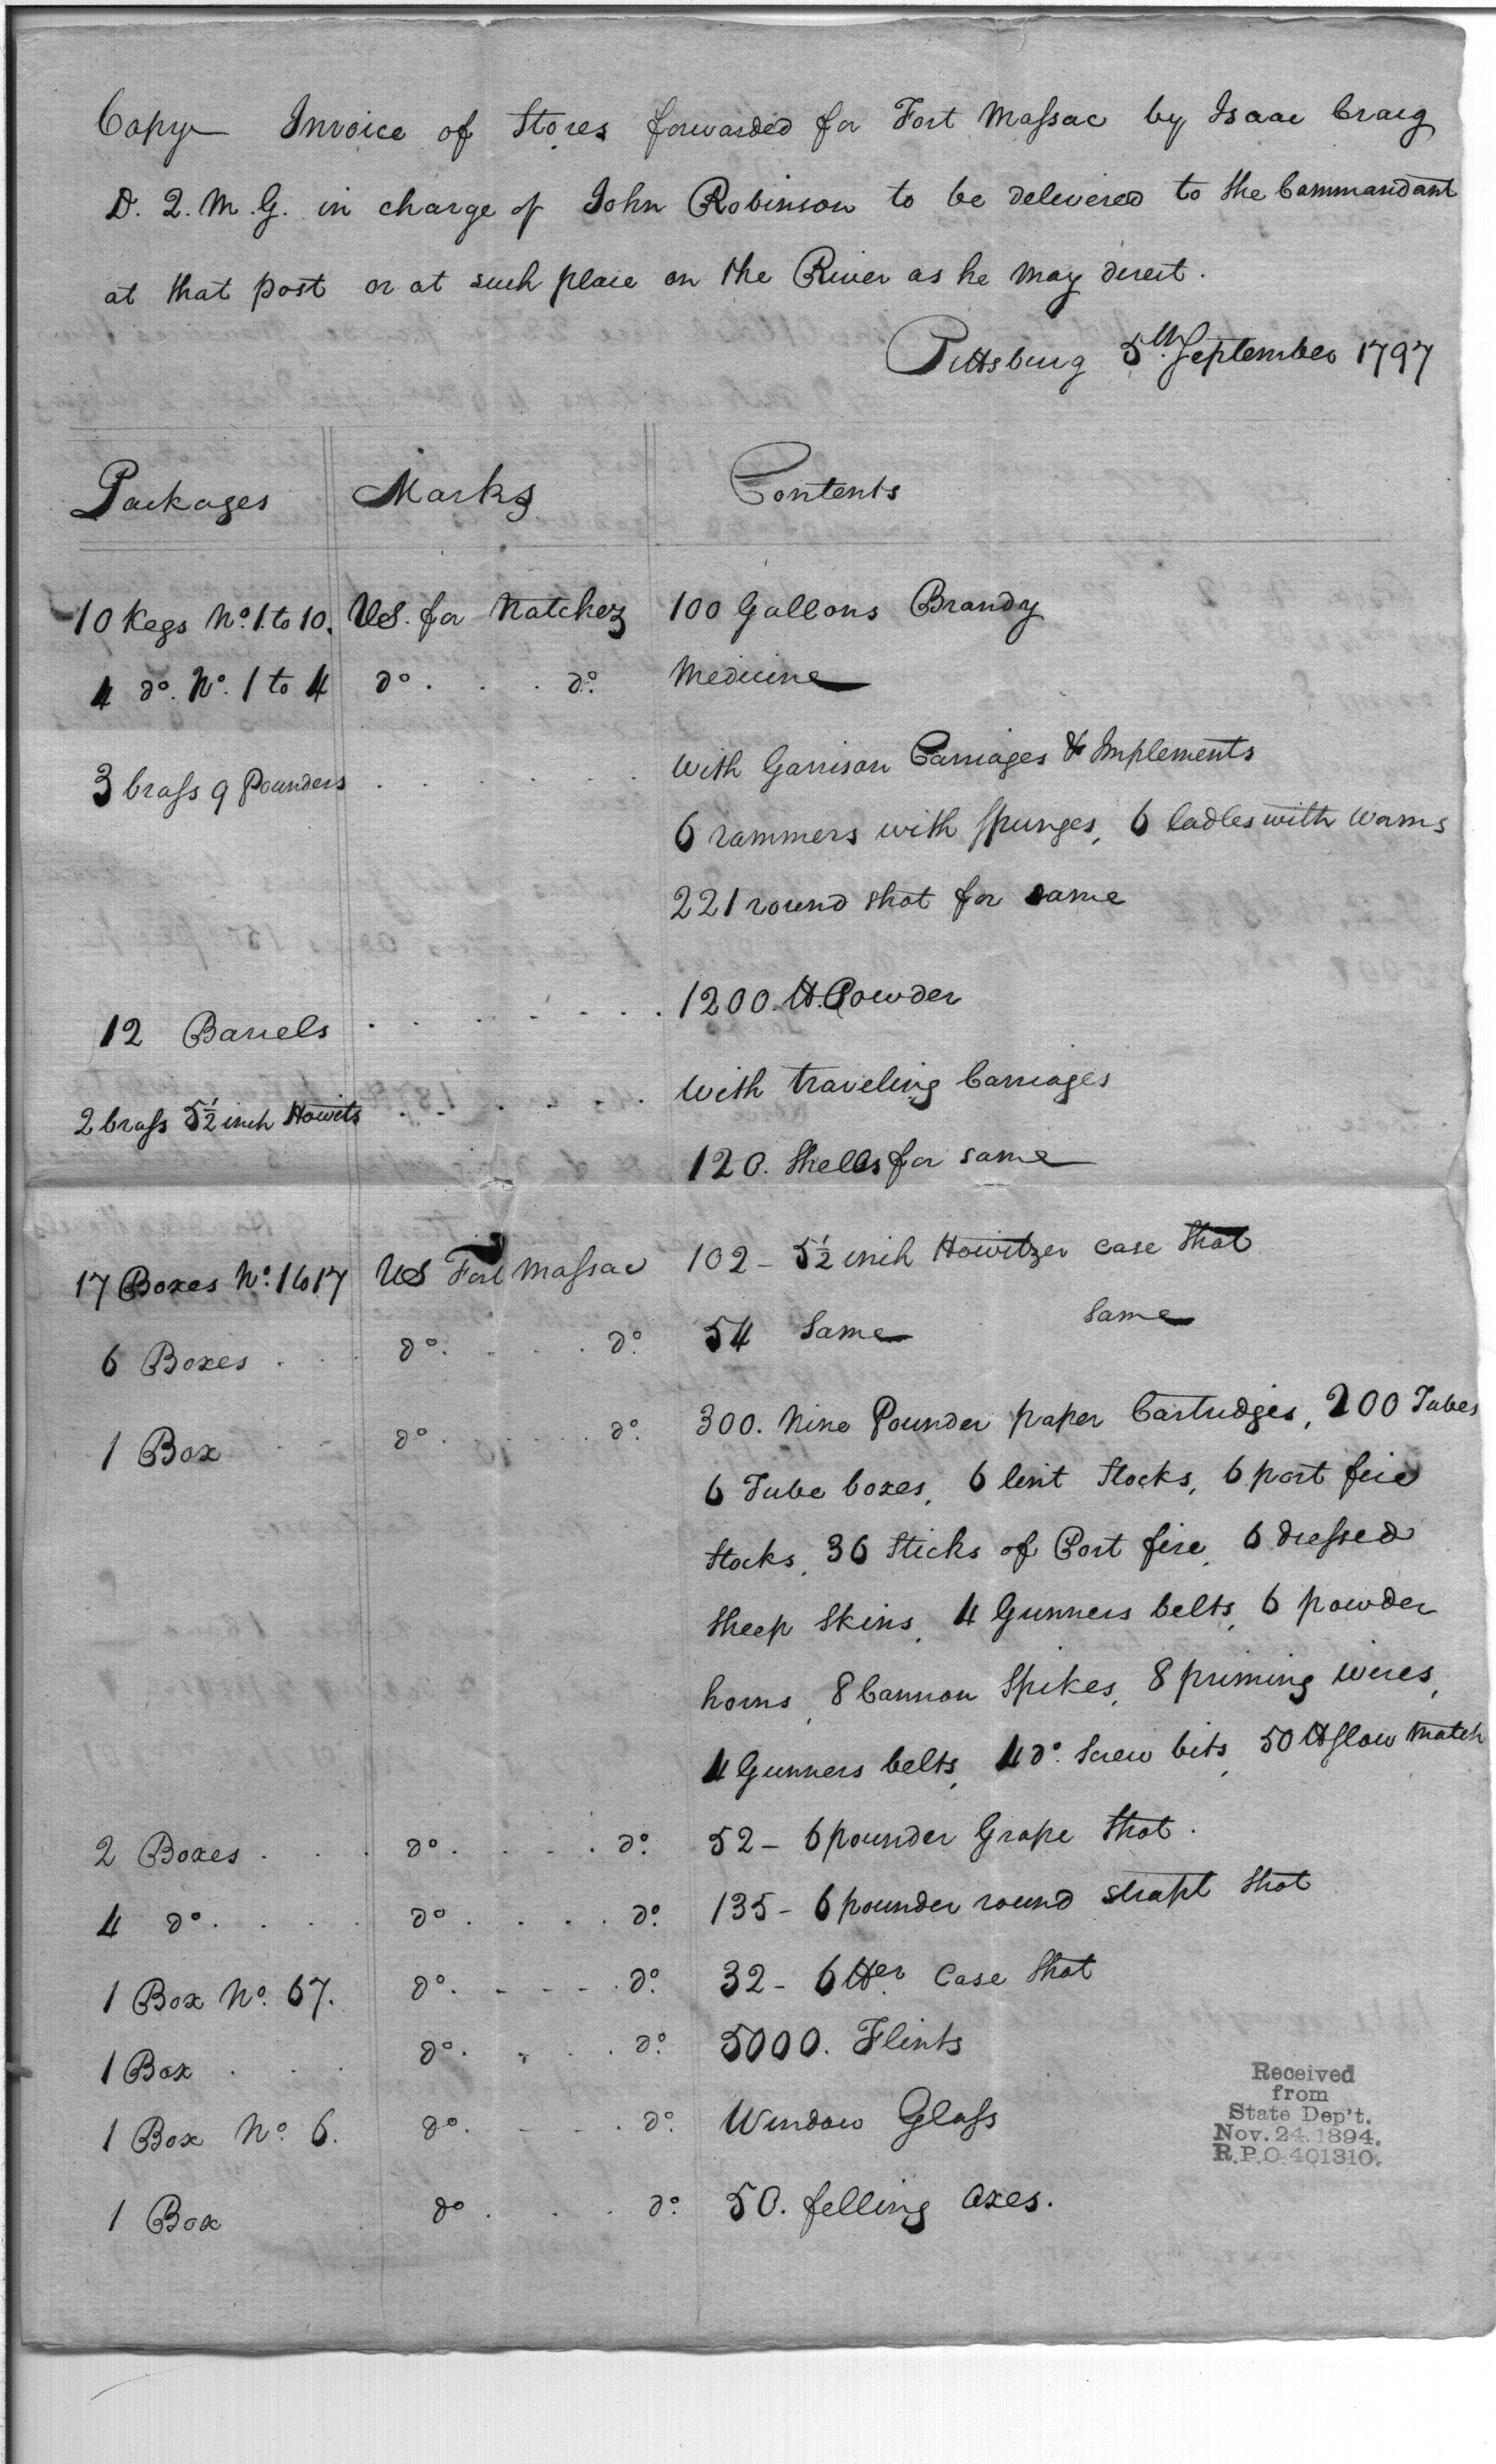 Copy Invoice of Stores forwarded for Fort Massac by Isaac Craig
D. Q. M. G. in charge of John Robinson to be delivered to the Commandant
at that post or at such place on the River as he may direct.
Pittsburg 5th. September 1797
Packages Marks Contents
10 Kegs No. 1 to 10. US. for Natchez 100 Gallons Brandy
4 do. No. 1 to 4 do . . . do. Medicine
3 brass 9 Pounders . . . . . . With Garrison Carriages & Implements
6 rammers with spunges, 6 ladles with worms
221 round shot for same
12 Barrels . . . . . . 1200. lb. Powder
2 brass 5½ inch Howits . . . . . . With traveling Carriages
120. Shells for same
17 Boxes No. 1 to 17 US Fort Massac 102 - 5½ inch Howitzer case Shot
6 Boxes . . . do. . . . . do. 54 Same Same
1 Box . . do. . . . . . do. 300. Nine Pounder paper Cartridges, 200 Tubes
6 Tube boxes, 6 lint Stocks, 6 port fire
Stocks, 36 Sticks of Port fire, 6 dressed
Sheep Skins, 4 Gunners belts, 6 powder
horns, 8 Cannon Spikes, 8 priming wires,
4 Gunners belts, 4 do. Screw bits, 50 lb slow match
2 Boxes . . . do. . . . . do. 52 - 6 pounder Grape Shot.
4 do. . . . do. . . . . do. 135 - 6 pounder round strapt Shot
1 Box No. 67. do. - - - . do. 32 - 6 lber. Case Shot
1 Box . . . do. . . . do. 5000. Flints
1 Box No. 6. do. - - . do. Window Glass
1 Box do . . . do. 50. felling Axes.
Received
from
State Dep't.
Nov. 24. 1894.
R.P.O. 401310.